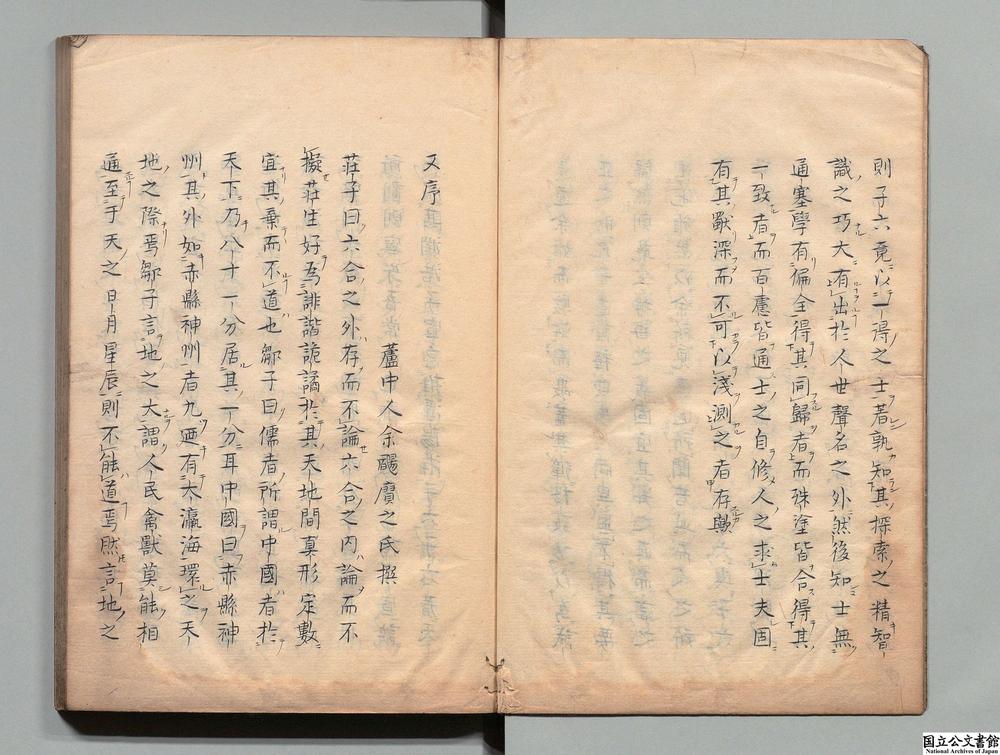 則子六竟以一得之士著孰知其探索之精智
識之巧大有出於人世聲名之外然後知士無
通塞學有偏全得其同歸者而殊塗皆合得其
一致者而百慮皆通士之自修人之求士夫固
有其獸深而不可以淺測之者存與
又序
蘆中人余颺賡之氏撰
莊子曰六合之外存而不論六合之内論而不
擬莊生好為誹諧詭譎於其天地間真形定數
宜其棄而不道也鄒子曰儒者所謂中國者於
天下乃八十一分居其一分耳中國曰赤縣神
州其外如赤縣神州者九迺有大瀛海環之天
地之際焉鄒子言地之大謂人民禽獸莫能相
通至于天之日月星辰則不能道焉然言地之
国立公文書館
National Archives of Japan